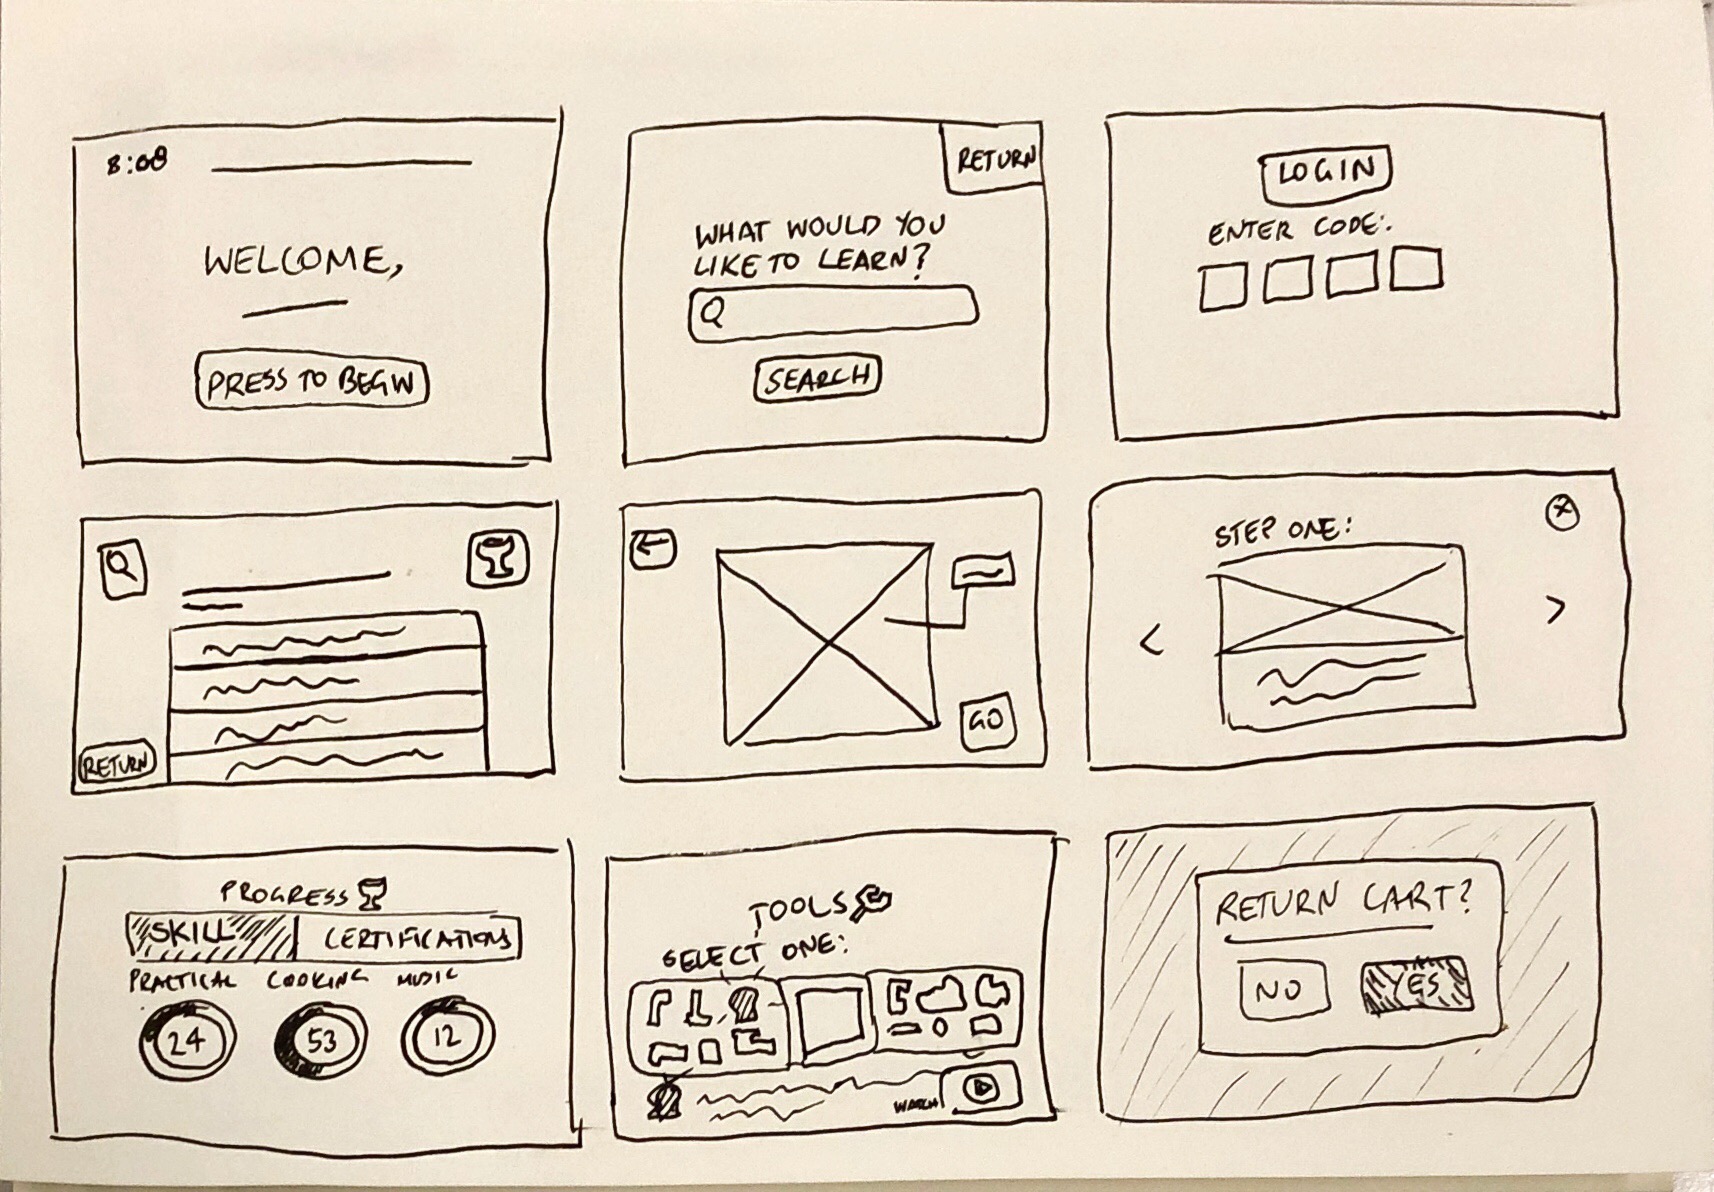 8:08
WELCOME,
PRESS TO BEGIN
RETURN
WHAT WOULD YOU
LIKE TO LEARN?
SEARCH
LOGIN
ENTER CODE:
RETURN
GO
STEP ONE:
PROGRESS
SKILL CERTIFICATIONS
PRACTICAL COOKING MUSIC
24 53 12
TOOLS
SELECT ONE:
WATCH
RETURN CART?
NO YES